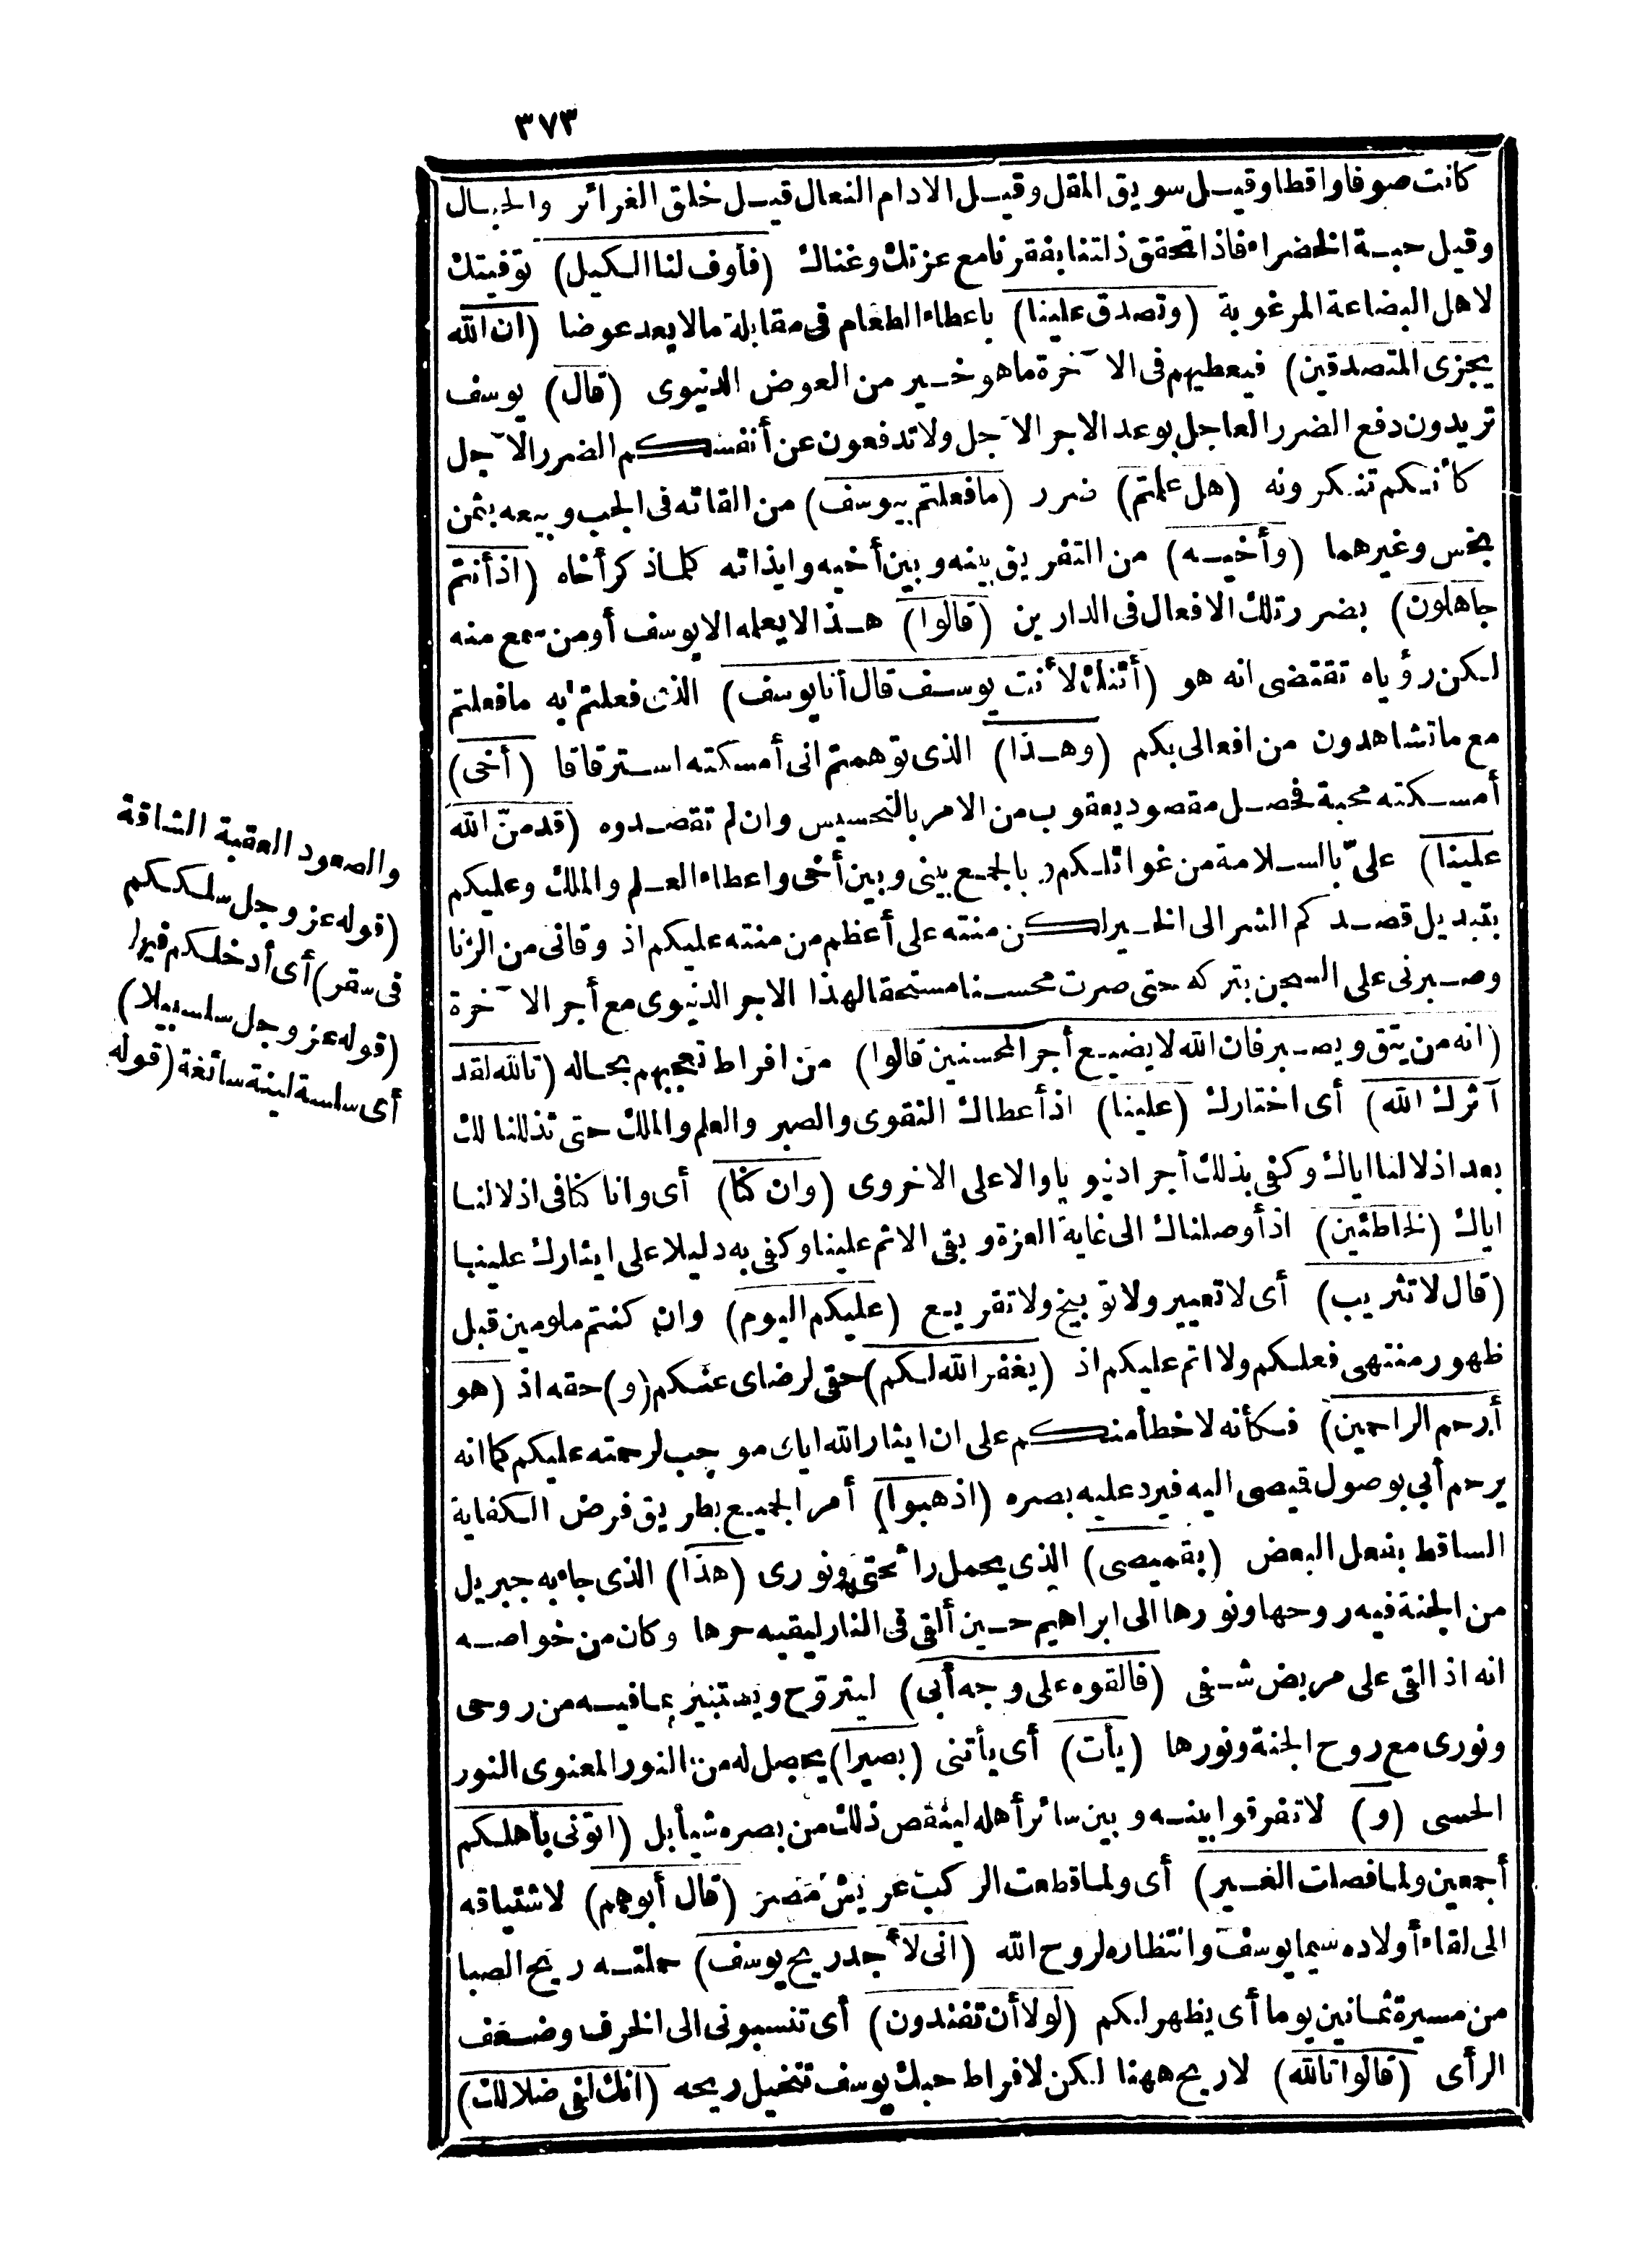 ٣٧٣
كانت صوفا واقطا وقيل سويق المقل وقيل الادام النعال قيل خلق الغرائر والحبال
وقيل حبة الخضراء فاذا تحقق ذلتنا بفقرنا مع عزتك وغناك (فأوف لنا الكيل) توفيتك
لاهل البضاعة المرغوبة (وتصدق علينا) باعطاء الطعام فى مقابلة مالا يعد عوضا (ان الله
يجزى المتصدقين) فيعطيهم فى الآخرة ما هو خير من العوض الدنيوى (قال) يوسف
تريدون دفع الضرر العاجل بوعد الاجر الآجل ولا تدفعون عن أنفسكم الضرر الآجل
كأنكم تنكرونه (هل علمتم) ضرر (ما فعلتم بيوسف) من القائه فى الجب وبيعه بثمن
بخس وغيرهما (وأخيه) من التفريق بينه وبين أخيه وايذائه كلما ذكر أخاه (اذ أنتم
جاهلون) بضرر تلك الافعال فى الدارين (قالوا) هذا لا يعلمه الا يوسف أو من سمع منه
لكن رؤياه تقتضى انه هو (أئنك لأنت يوسف قال أنا يوسف) الذى فعلتم به ما فعلتم
مع ما تشاهدون من افعالى بكم (وهذا) الذى توهمتم انى أمسكته استرقاقا (أخى)
أمسكته محبة فحصل مقصود يعقوب من الامر بالتحسيس وان لم تقصدوه (قد منّ الله
علينا) علىّ بالسلامة من غوائلكم و بالجمع بينى وبين أخى واعطاء العلم والملك وعليكم
بتبديل قصدكم الشر الى الخير لكن منته على أعظم من منته عليكم اذ وقانى من الزنا
وصبرنى على السجن بتركه حتى صرت محسنا مستحقا لهذا الاجر الدنيوى مع أجر الآخرة
(انه من يتق ويصبر فان الله لا يضيع أجر المحسنين قالوا) من افراط تعجبهم بحاله (تالله لقد
آثرك الله) أى اختارك (علينا) اذ أعطاك التقوى والصبر والعلم والملك حتى تذللنا لك
بعد اذلالنا اياك وكفى بذلك أجرا دنيويا والا على الاخروى (وان كنا) أى وانا كنا فى اذلالنا
اياك (لخاطئين) اذ أوصلناك الى غاية العزة وبقى الاثم علينا وكفى به دليلا على ايثارك علينا
(قال لا تثريب) أى لا تعيير ولا توبيخ ولا تقريع (عليكم اليوم) وان كنتم ملومين قبل
ظهور منتهى فعلكم ولا اثم عليكم اذ (يغفر الله لكم) حقى لرضاى عنكم (و) حقه اذ (هو
أرحم الراحمين) فكأنه لا خطأ منكم على ان ايثار الله اياى موجب لرحمته عليكم كما انه
يرحم أبى بوصول قيصى اليه فيرد عليه بصره (اذهبوا) أمر الجميع بطريق فرض الكفاية
الساقط بفعل البعض (بقميصى) الذى يحمل رائحتى ونورى (هذا) الذى جاء به جبريل
من الجنة فيه روحها ونورها الى ابراهيم حين ألقى فى النار ليقيه حرها وكان من خواصه
انه اذ القى على مريض شفى (فالقوه على وجه أبى) ليتروّح ويستنير بما فيه من روحى
ونورى مع روح الجنة ونورها (يأت) أى يأتنى (بصيرا) يحصل له من النور المعنوى النور
الحسى (و) لا تفرقوا بينه وبين سائر أهله لينقص ذلك من بصره شيأ بل (ائتونى بأهلكم
أجمعين ولما فصلت العير) أى ولما قطعت الركب عريش مصر (قال أبوهم) لاشتياقه
الى لقاء أولاده سيما يوسف وانتظاره لروح الله (انى لأجد ريح يوسف) حملته ريح الصبا
من مسيرة ثمانين يوما أى يظهر لكم (لولا أن تفندون) أى تنسبونى الى الخرف وضعف
الرأى (قالوا تالله) لا ريح ههنا لكن لافراط حبك يوسف تتخيل ريحه (انك لفى ضلالك)
والصعود العقبة الشاقة
(قوله عز وجل سلككم
فى سقر) أى أدخلكم فيها
(قوله عز وجل سلسبيلا)
أى سلسة لينة سائغة (قوله